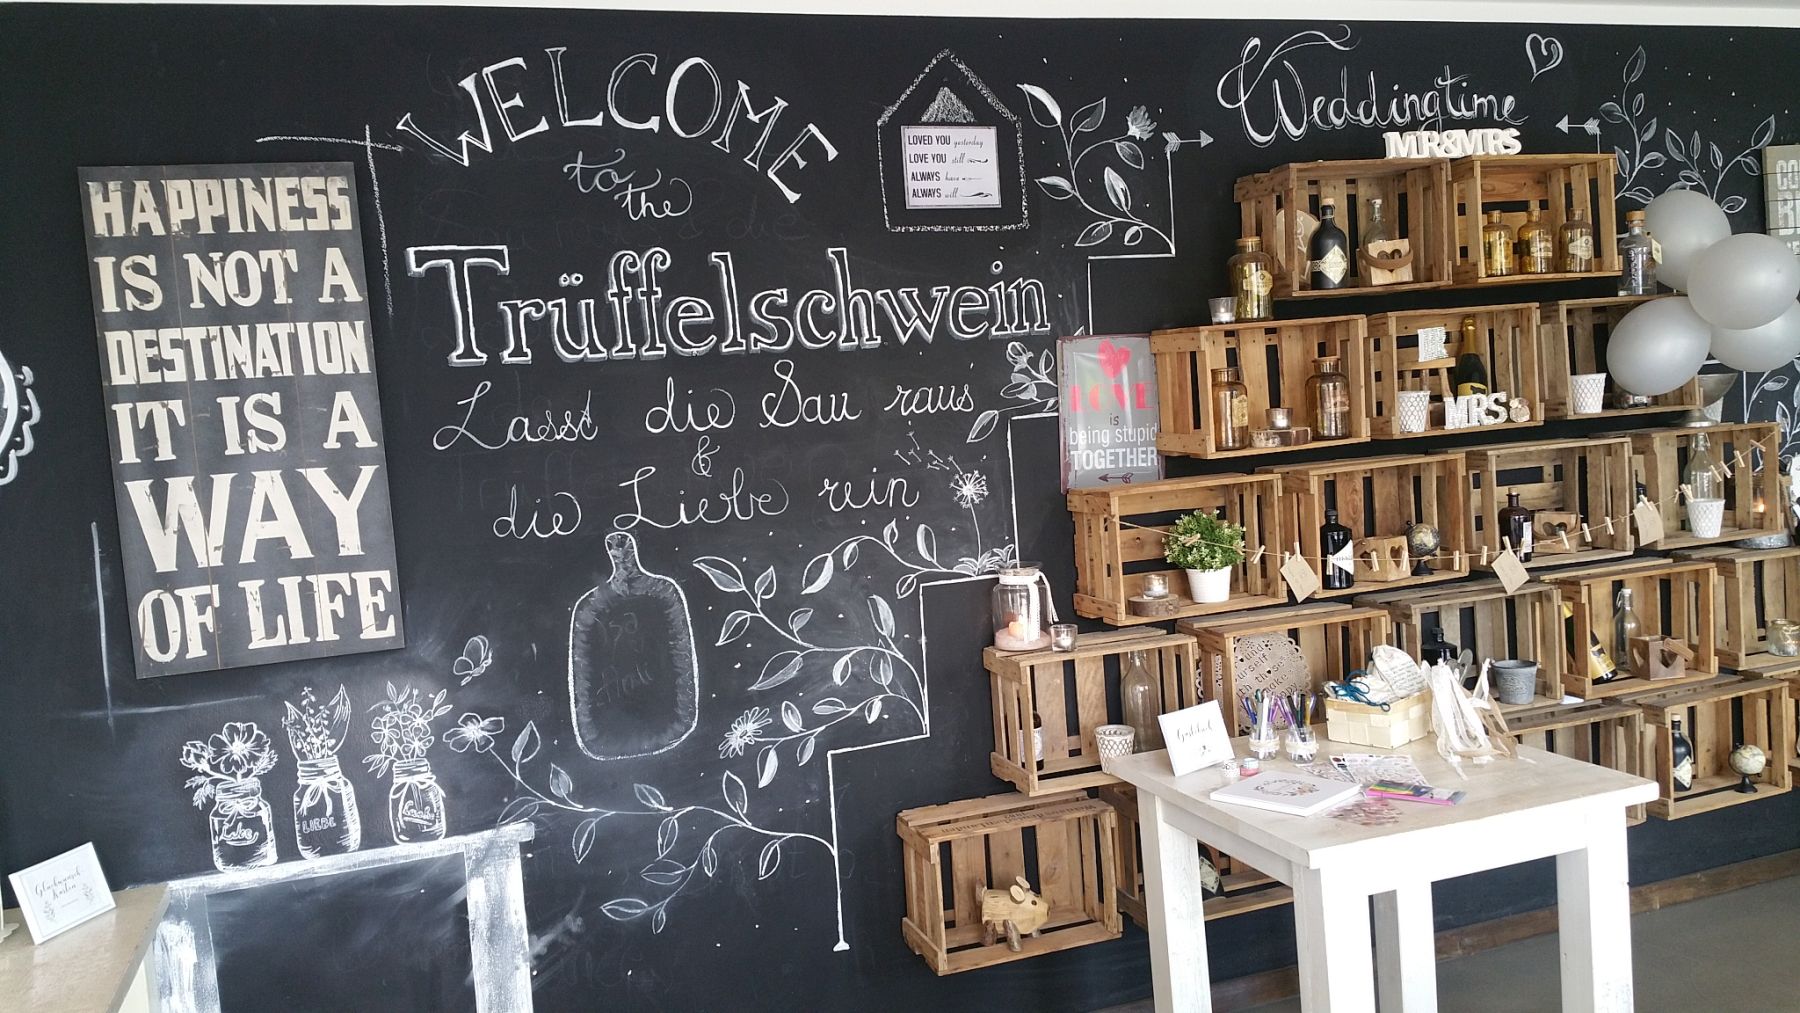 HAPPINESS
IS NOT A
DESTINATION
IT IS A
WAY
OF LIFE
WELCOME
to
the
Trüffelschwein
Lasst die Sau raus
&
die Liebe rein
LOVED YOU yesterday
LOVE YOU still
ALWAYS have
ALWAYS will
Weddingtime
MR&MRS
LOVE
is
being stupid
TOGETHER
MRS
LIEBE
Glückwunsch
Karten
Gästebuch